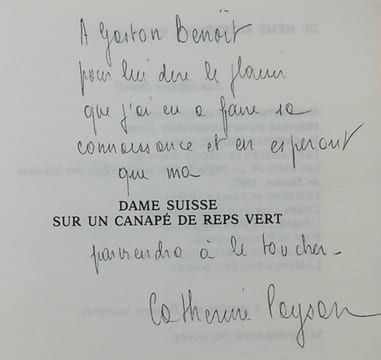 A Gaston Benoît
pour lui dire le plaisir
que j'ai eu a faire sa
connaissance et en esperant
que ma
DAME SUISSE
SUR UN CANAPÉ DE REPS VERT
parviendra à le toucher_
Catherine Paysan